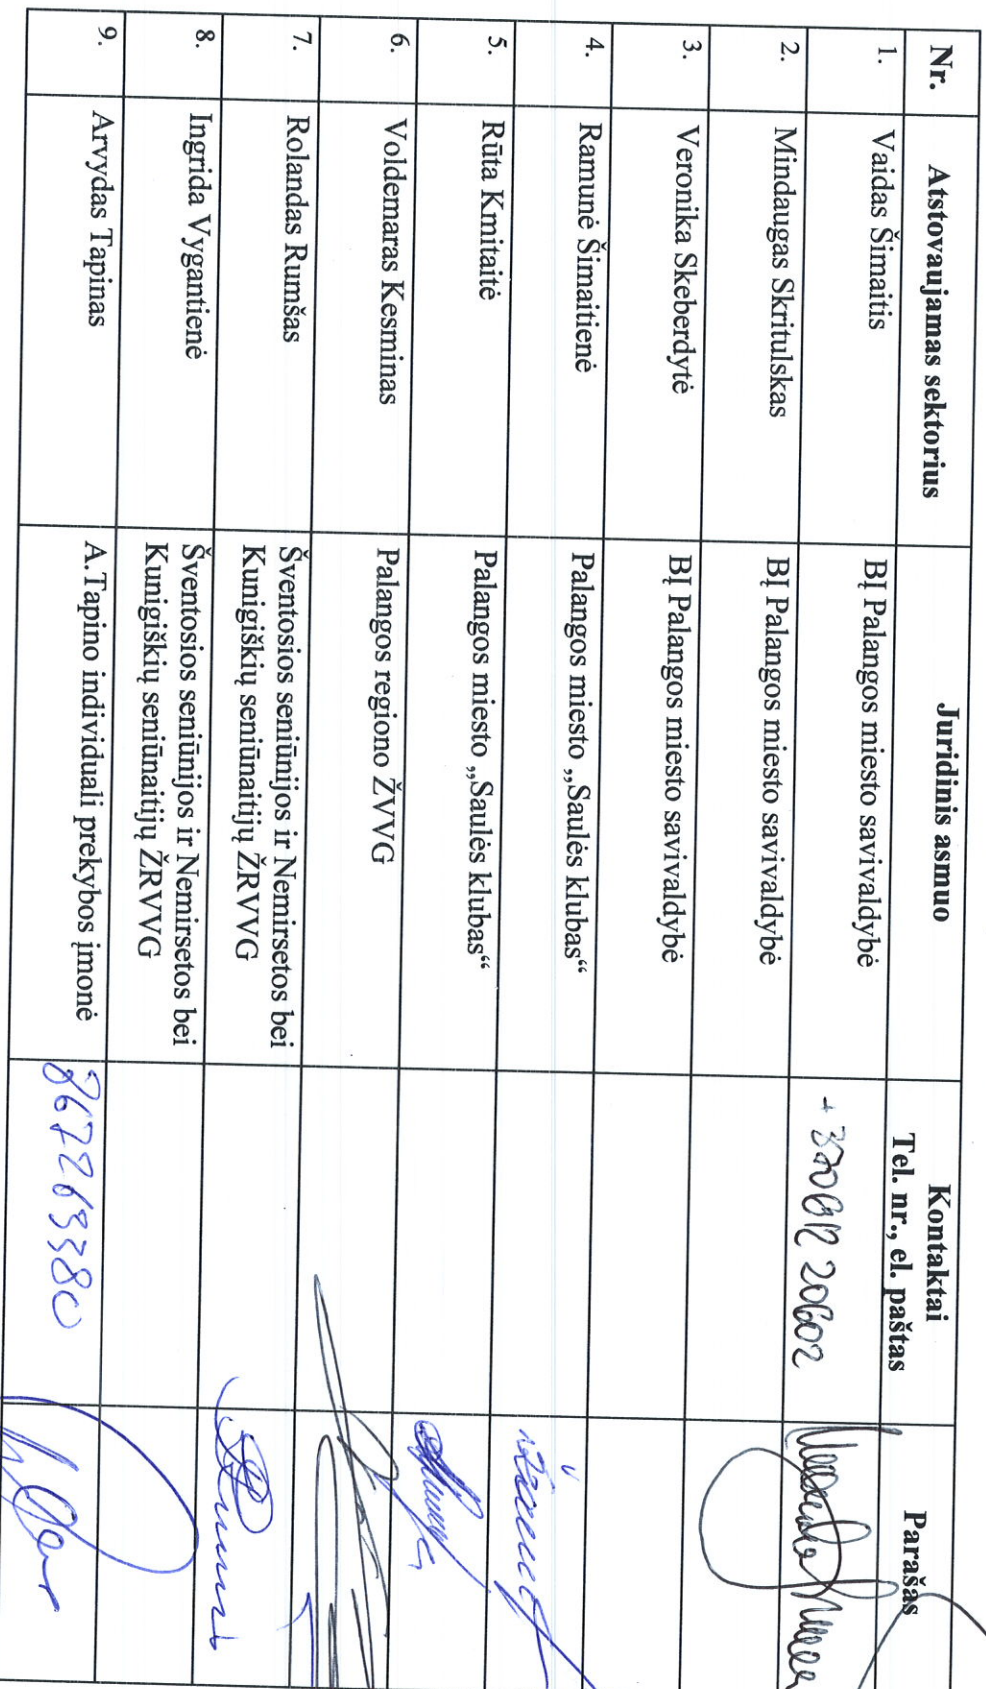 Nr. Atstovaujamas sektorius Juridinis asmuo Kontaktai Parašas
Tel. nr., el. paštas
1. Vaidas Šimaitis BĮ Palangos miesto savivaldybė +370612 20602
2. Mindaugas Skritulskas BĮ Palangos miesto savivaldybė
3. Veronika Skeberdytė BĮ Palangos miesto savivaldybė
4. Ramunė Šimaitienė Palangos miesto „Saulės klubas“
5. Rūta Kmitaitė Palangos miesto „Saulės klubas“
6. Voldemaras Kesminas Palangos regiono ŽVVG
7. Rolandas Rumšas Šventosios seniūnijos ir Nemirsetos bei
Kunigiškių seniūnaitijų ŽRVVG
8. Ingrida Vygantienė Šventosios seniūnijos ir Nemirsetos bei
Kunigiškių seniūnaitijų ŽRVVG
9. Arvydas Tapinas A.Tapino individuali prekybos įmonė 867769380